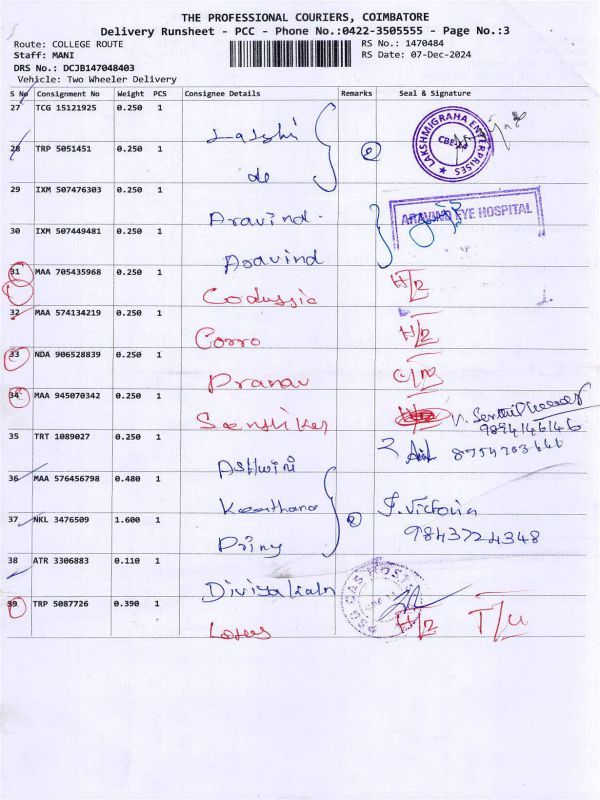 THE PROFESSIONAL COURIERS, COIMBATORE
Delivery Runsheet - PCC - Phone No.:0422-3505555 - Page No.:3
Route: COLLEGE ROUTE
RS No.: 1470484
Staff: MANI
RS Date: 07-Dec-2024
DRS No.: DCJB147048403
Vehicle: Two Wheeler Delivery
S No Consignment No Weight PCS Consignee Details Remarks Seal & Signature
27 TCG 15121925 0.250 1
LAKSHMIGRAHA ENTERPRISES
CBE-14
28 TRP 5051451 0.250 1
do
29 IXM 507476303 0.250 1
Aravind
ARAVIND EYE HOSPITAL
30 IXM 507449481 0.250 1
Aravind
31 MAA 705435968 0.250 1
Codussia
32 MAA 574134219 0.250 1
Corro
33 NDA 906528839 0.250 1
Pranav
34 MAA 945070342 0.250 1
35 TRT 1089027 0.250 1
Ashwini
36 MAA 576456798 0.480 1
Keerthana
J. Victoria
9843724348
37 NKL 3476509 1.600 1
38 ATR 3306883 0.110 1
39 TRP 5087726 0.390 1
Lotus